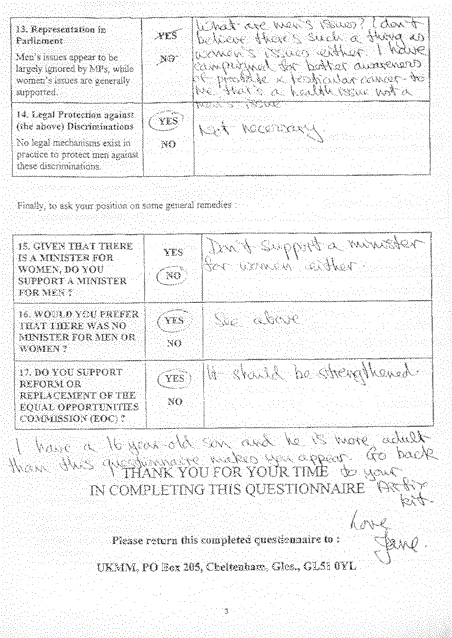 13. Representation in
Parliment
Men's issues appear to be
largely ignored by MPs, while
women's issues are generally
supported.
YES
NO
What are men's issues? I don't
believe there's such a thing as
women's issues either. I have
campaigned for better awareness
of prostate & testicular cancer - to
me that's a health issue not a
men's issue
14. Legal Protection against
(the above) Discriminations
No legal mechanisms exist in
practice to protect men against
these discriminations.
YES
NO
Not necessary
Finally, to ask your position on some general remedies :
15. GIVEN THAT THERE
IS A MINISTER FOR
WOMEN, DO YOU
SUPPORT A MINISTER
FOR MEN ?
YES
NO
Don't support a minister
for women either.
16. WOULD YOU PREFER
THAT THERE WAS NO
MINISTER FOR MEN OR
WOMEN ?
YES
NO
See above
17. DO YOU SUPPORT
REFORM OR
REPLACEMENT OF THE
EQUAL OPPORTUNITIES
COMMISSION (EOC) ?
YES
NO
It should be strengthened.
I have a 16 year-old son and he is more adult
than this questionnaire makes you appear. Go back
to your
kit.
THANK YOU FOR YOUR TIME
IN COMPLETING THIS QUESTIONNAIRE
Love
Jane.
Please return this completed questionnaire to :
UKMM, PO Box 205, Cheltenham, Glos., GL51 0YL
3